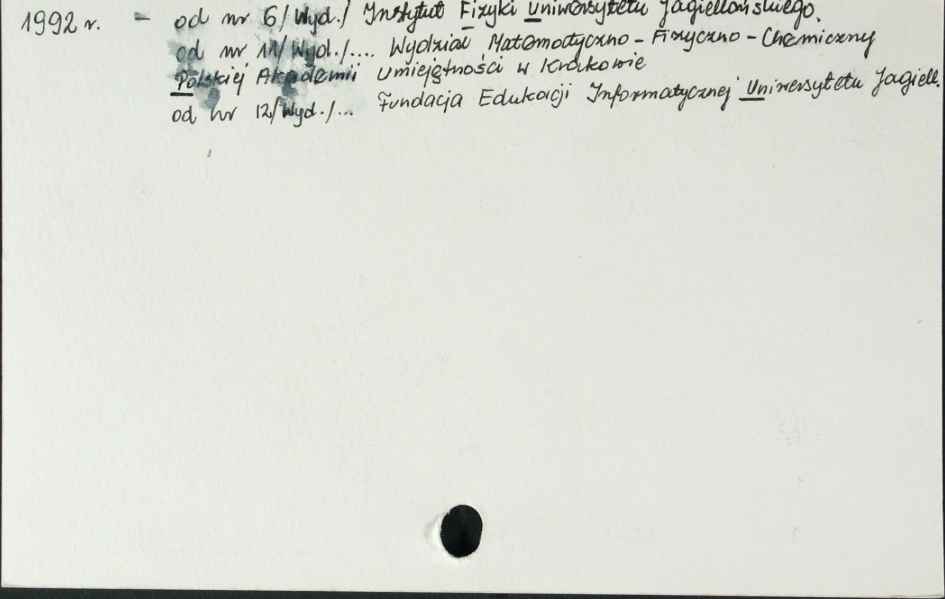 1992 r. - od nr 6/Wyd./ Instytut Fizyki Uniwersytetu Jagiellońskiego.
od nr 11/Wyd./.... Wydział Matematyczno-Fizyczno-Chemiczny
Polskiej Akademii Umiejętności w Krakowie
od nr 12/Wyd./... Fundacja Edukacji Informatycznej Uniwersytetu Jagiell.